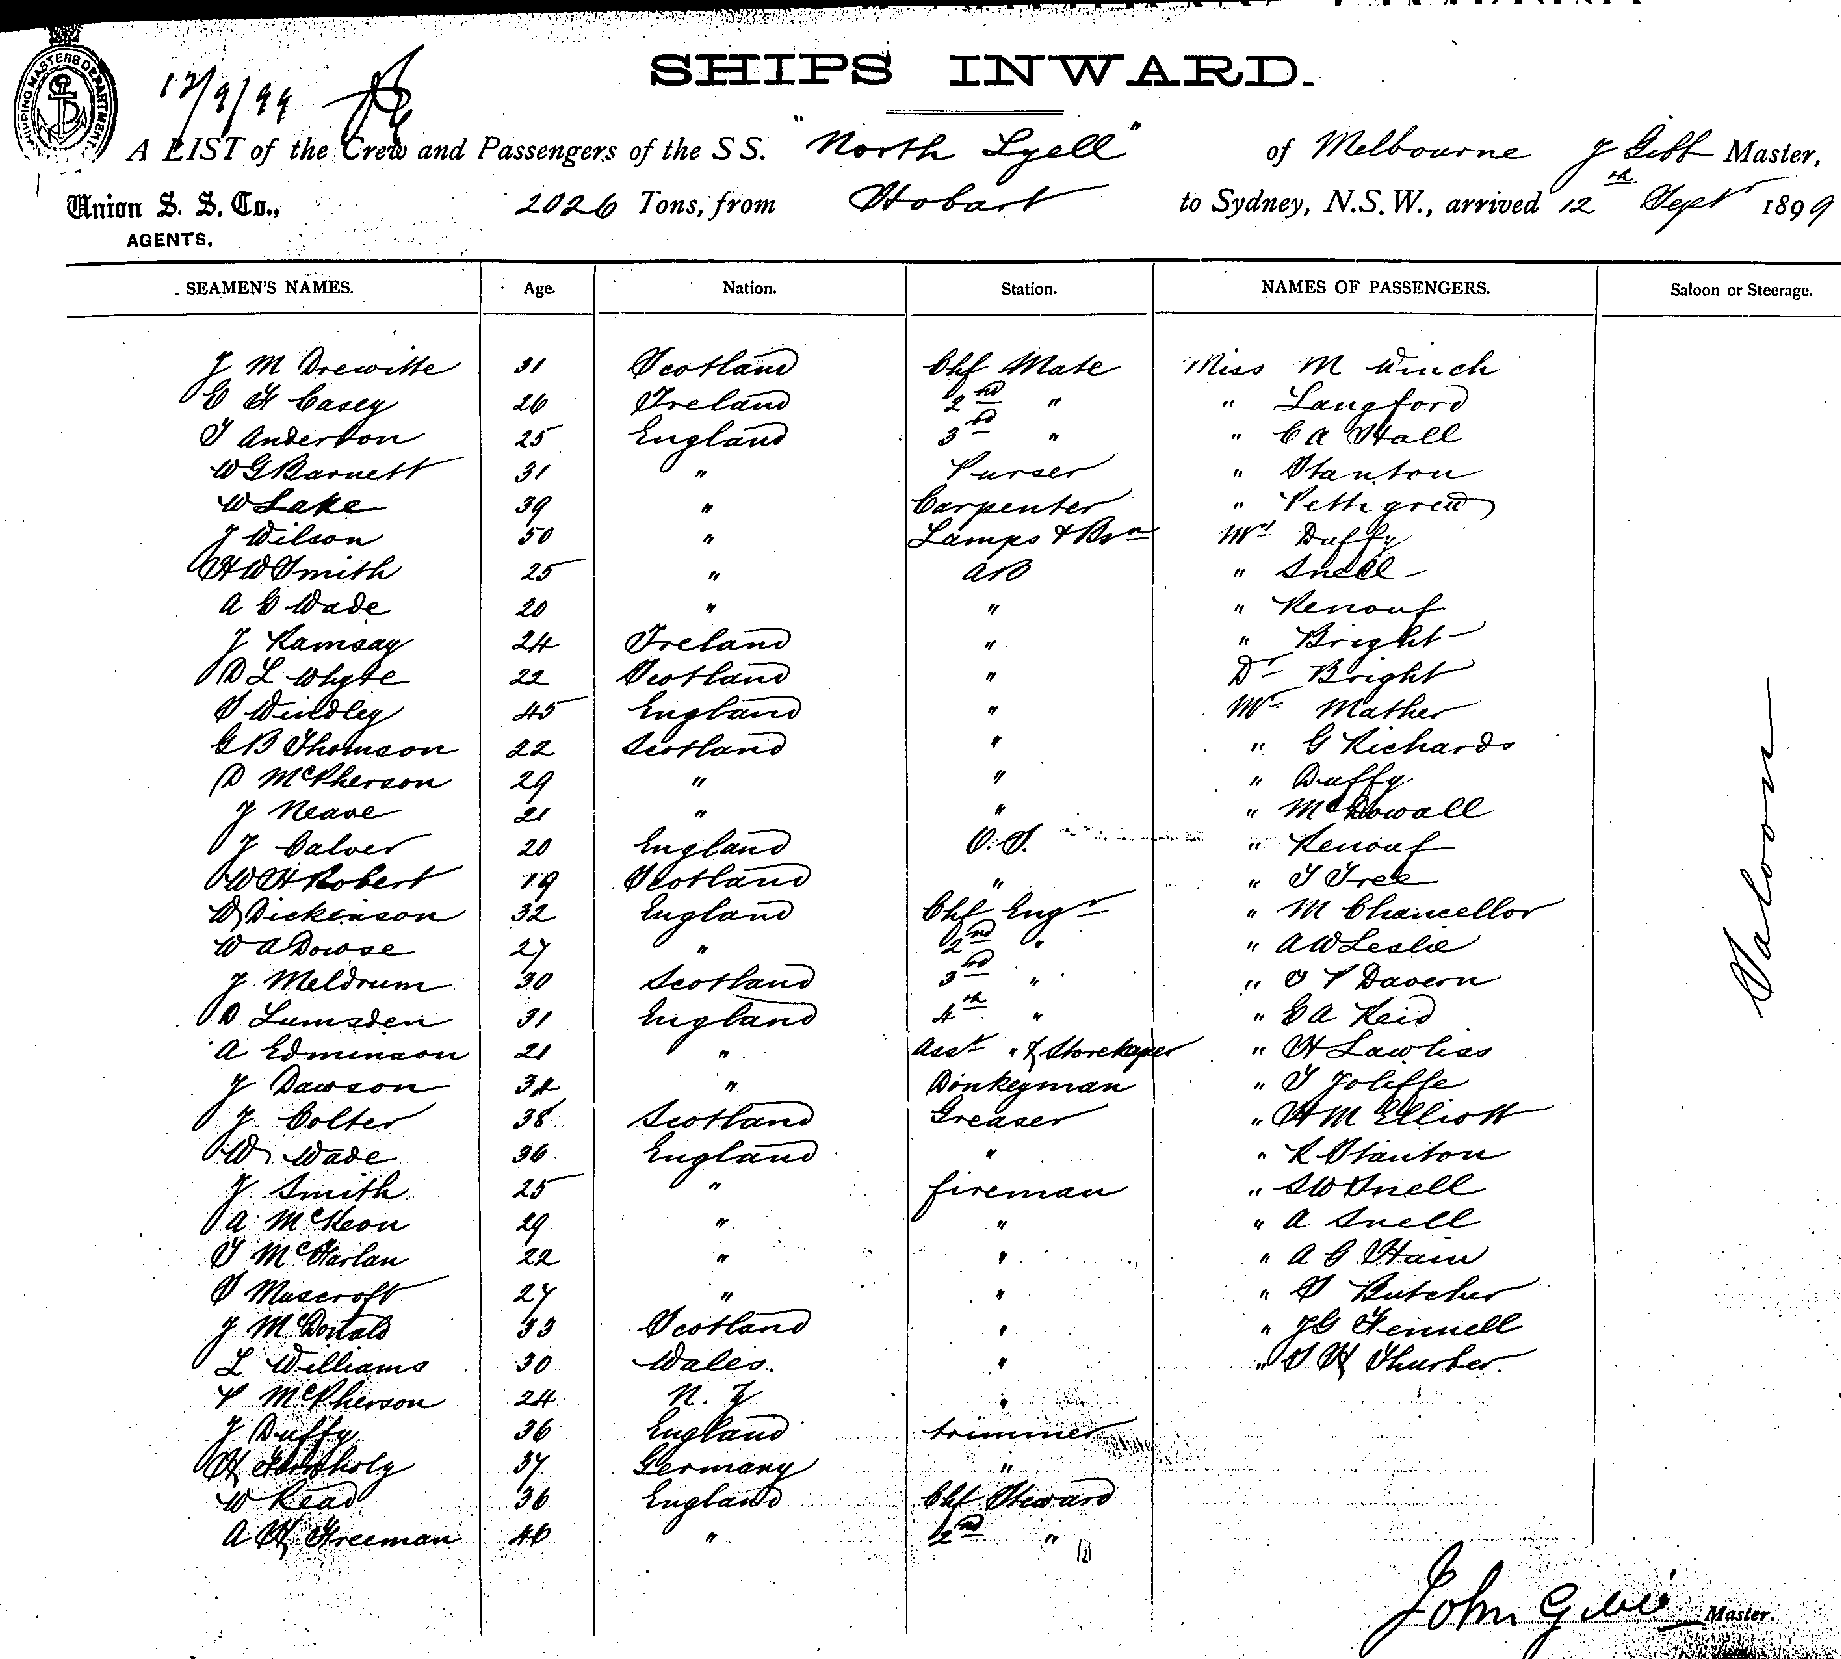 SHIPS INWARD.
12/9/99
A LIST of the Crew and Passengers of the SS. "North Lyell" of Melbourne J Gibb Master,
Union S. S. Co., 2026 Tons, from Hobart to Sydney, N.S.W., arrived 12th Sept 1899
AGENTS.
SEAMEN'S NAMES. Age. Nation. Station. NAMES OF PASSENGERS. Saloon or Steerage.
J M Drewitte 31 Scotland Chf Mate Miss M Winch
E F Casey 26 Ireland 2nd " " Langford
T Anderton 25 England 3rd " " C A Hall
W G Barnett 31 " Purser " Stanton
W Lake 39 " Carpenter " Pettigrew
J Wilson 50 " Lamps & Bsn Mrs Duffy
H W Smith 25 " AB " Snell
A C Wade 20 " " " Renouf
J Ramsay 24 Ireland " " Bright
D L Whyte 22 Scotland " Dr Bright
S Windley 45 England " Mr Mather
G B Thomson 22 Scotland " " G Richards
D McPherson 29 " " " Duffy
J Neave 21 " " " McDowall
J Calver 20 England O.S. " Renouf
W H Robert 19 Scotland " " T Tree
W Dickinson 32 England Chf Engr " M Chancellor
W A Dowse 27 " 2nd " " A W Leslie
J Meldrum 30 Scotland 3rd " " O P Davern
D Lumsden 31 England 4th " " E A Reid
A Edminson 21 " Asst " & Storekeeper " H Lawliss
J Dawson 34 " Donkeyman " T Joliffe
J Colter 38 Scotland Greaser " H M Elliott
W Wade 36 England " " R Stanton
J Smith 25 " fireman " S W Snell
A McKeon 29 " " " A Snell
T McFarlan 22 " " " A G Hain
S Muscroft 27 " " " S Butcher
J McDonald 33 Scotland " " J G Fennell
L Williams 30 Wales. " " S H Thurber.
P McPherson 24 N. Z "
J Duffy 36 England trimmer
H 37 Germany "
W Read 36 England Chf Steward
A H Freeman 46 " 2nd "
Saloon
John Gibb Master.